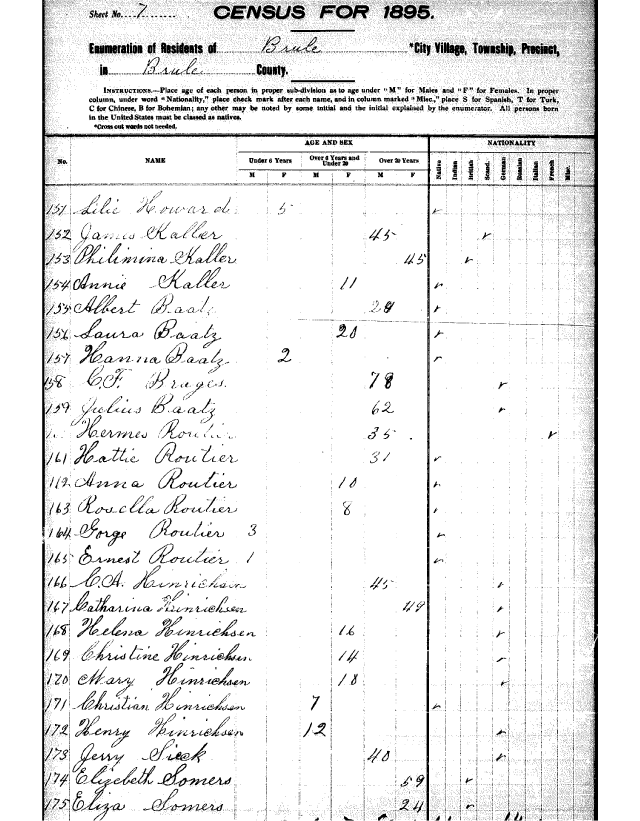 Sheet No. 7
CENSUS FOR 1895.
Enumeration of Residents of Brule *City Village, Township, Precinct,
in Brule County.
INSTRUCTIONS.—Place age of each person in proper sub-division as to age under "M" for Males and "F" for Females. In proper
column, under word "Nationality," place check mark after each name, and in column marked "Misc.," place S for Spanish, T for Turk,
C for Chinese, B for Bohemian; any other may be noted by some initial and the initial explained by the enumerator. All persons born
in the United States must be classed as natives.
*Cross out words not needed.
No. NAME AGE AND SEX NATIONALITY
Under 6 Years Over 6 Years and Under 20 Over 20 Years Native Indian British Scand. German Russian Italian French Misc.
M F M F M F
151 Lilie Howard 5 ✓
152 James Kaller 45 ✓
153 Philimina Kaller 45 ✓
154 Annie Kaller 11 ✓
155 Albert Baatz 29 ✓
156 Laura Baatz 20 ✓
157 Hanna Baatz 2 ✓
158 C.F. Bruges 78 ✓
159 Julius Baatz 62 ✓
Hermes Routier 35 ✓
161 Hattie Routier 31 ✓
112 Anna Routier 10 ✓
163 Rosella Routier 8 ✓
164 Gorge Routier 3 ✓
165 Ernest Routier 1 ✓
166 C.A. Hinrichsen 45 ✓
167 Catharina Hinrichsen 49 ✓
168 Helena Hinrichsen 16 ✓
169 Christine Hinrichsen 14 ✓
170 Mary Hinrichsen 18 ✓
171 Christian Hinrichsen 7 ✓
172 Henry Hinrichsen 12 ✓
173 Jerry Sieck 40 ✓
174 Elizebeth Somers 59 ✓
175 Eliza Somers 24 ✓